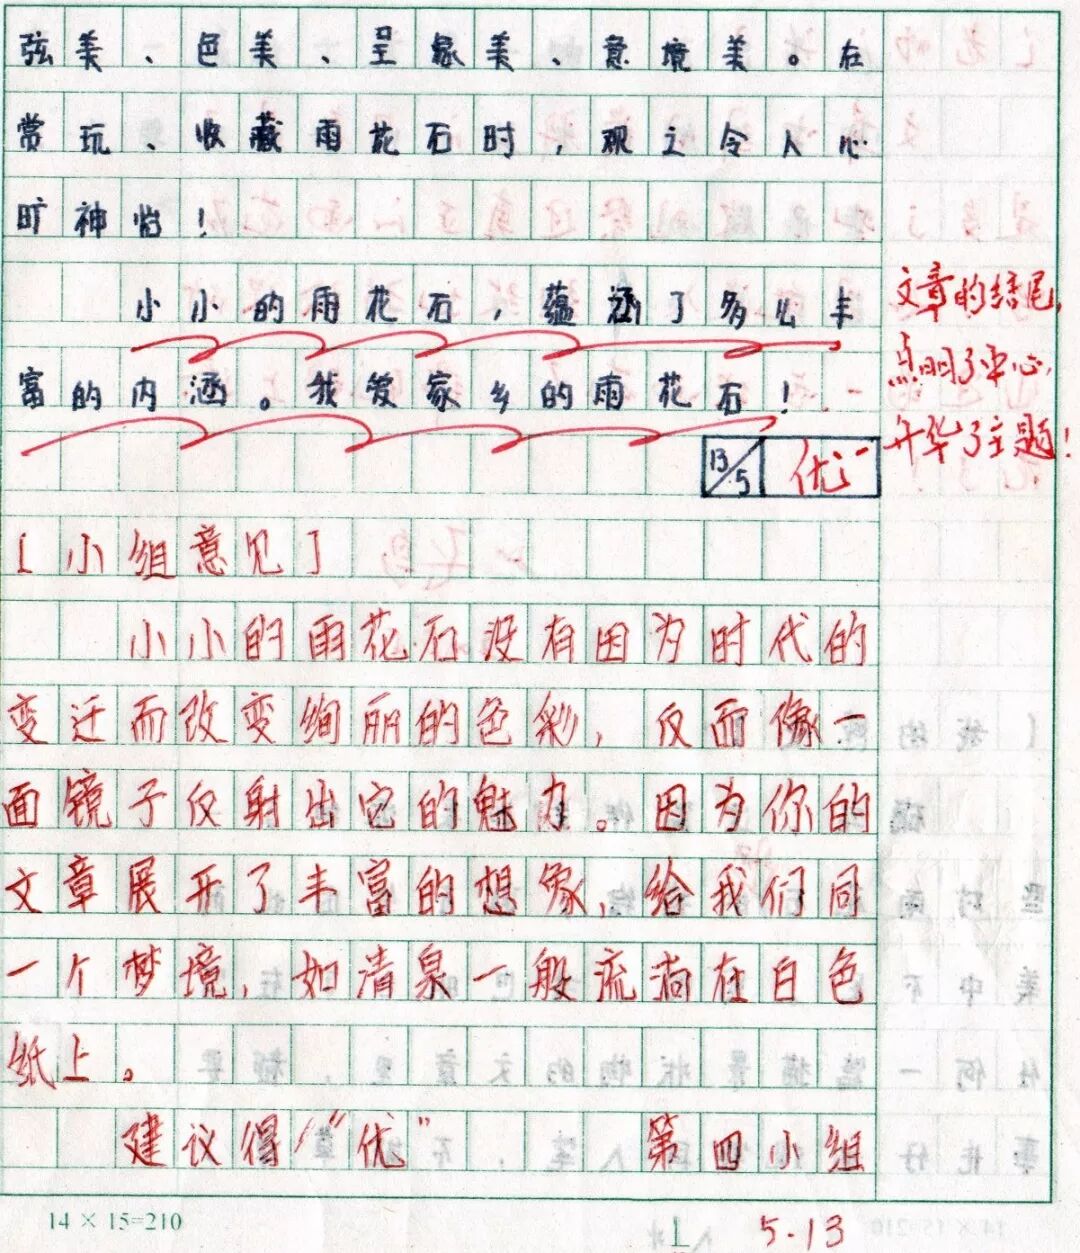 弦美、色美、呈象美、意境美。在
赏玩、收藏雨花石时，观之令人心
旷神怡！
小小的雨花石，蕴涵了多么丰
富的内涵。我爱家乡的雨花石！
文章的结尾，
点明了中心，
升华了主题！
13/5 优
[小组意见]
小小的雨花石没有因为时代的
变迁而改变绚丽的色彩，反而像一
面镜子反射出它的魅力。因为你的
文章展开了丰富的想象，给我们同
一个梦境，如清泉一般流淌在白色
纸上。
建议得“优”
第四小组
14 × 15=210
5.13